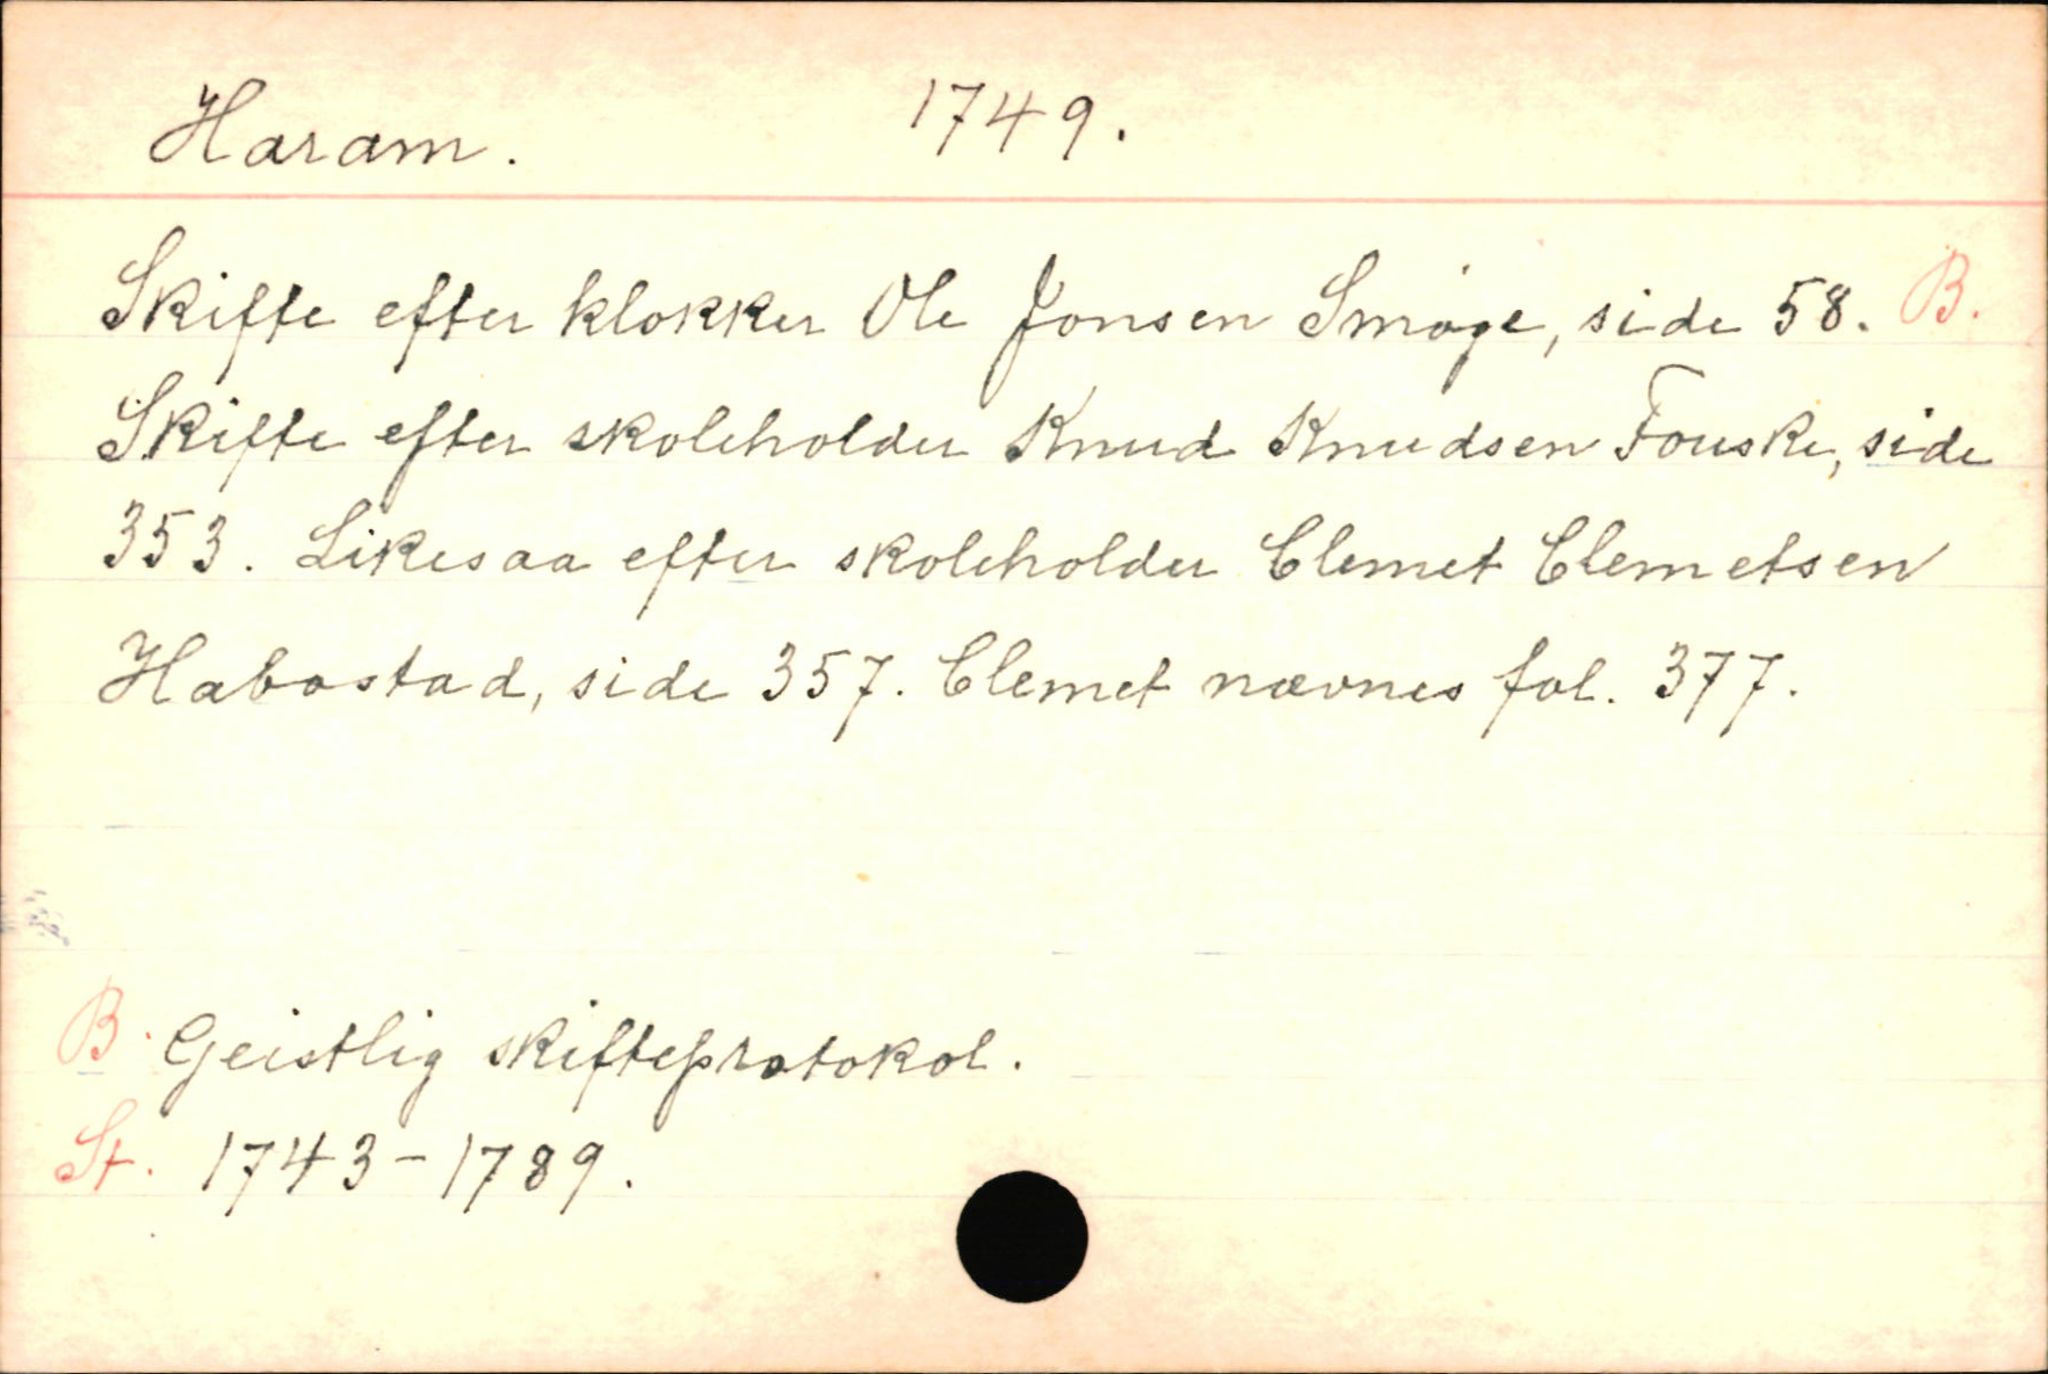 Haram. 1749.
Skifte efter klokker Ole Jonsen Småge, side 58. B.
Skifte efter skoleholder Knud Knudsen Fouske, side
353. Likesaa efter skoleholder Clemet Clemetsen
Habostad, side 357. Clemet nævnes fol. 377.
B. Geistlig skifteprotokol.
St. 1743-1789.